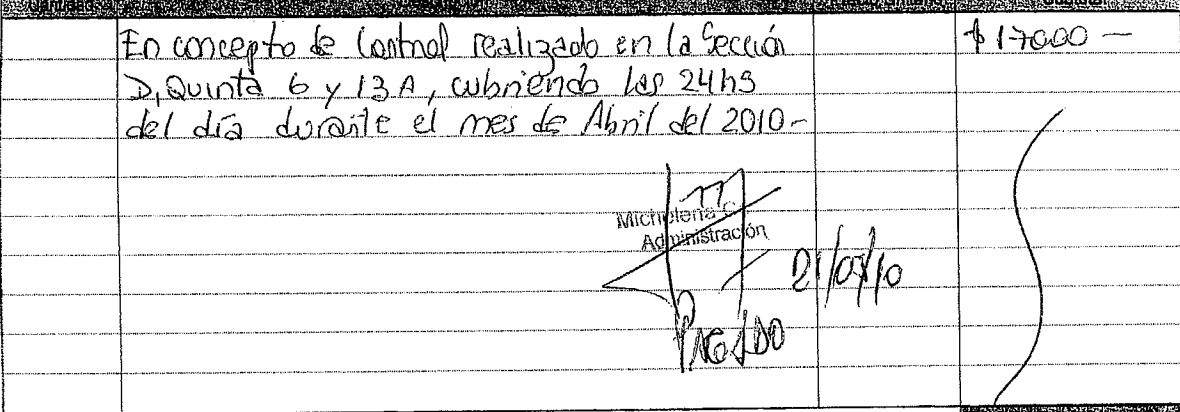 En concepto de Control realizado en la Sección $ 17000 —
D, Quinta 6 y 13 A, cubriendo las 24hs
del día durante el mes de Abril del 2010-
Michelena C.
Administración
PAGADO